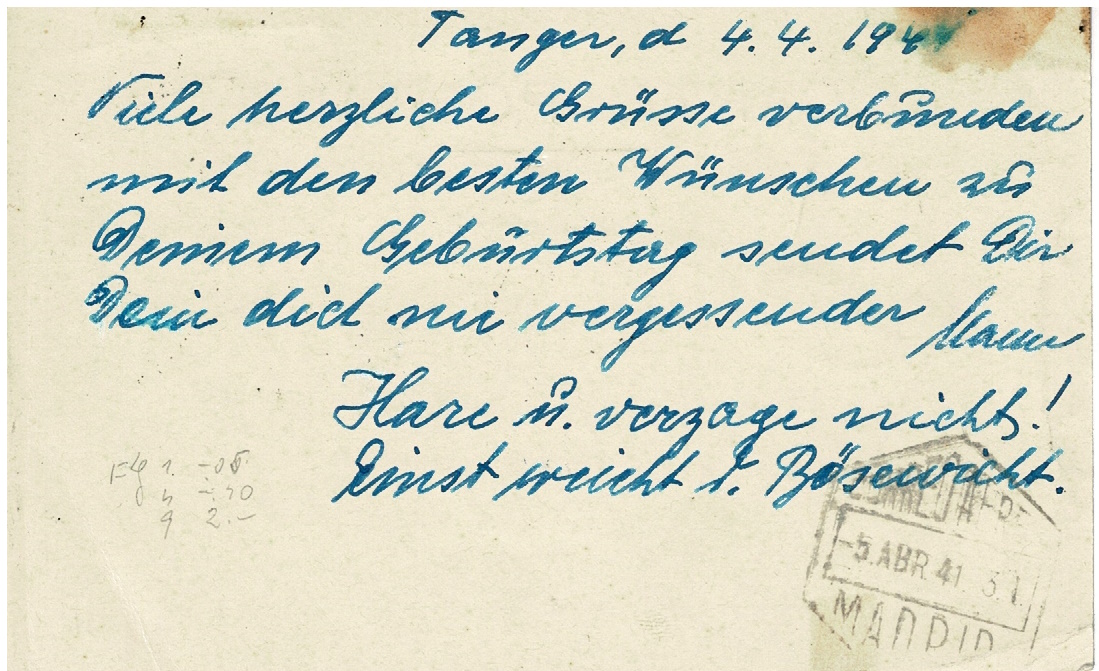 Tanger, d 4.4. 194
Viele herzliche Grüsse verbunden
mit den besten Wünschen zu
Deinem Geburtstag sendet Dir
Dein dich nie vergessender
Mann
Hare u. verzage nicht!
Einst weicht d. Bösewicht.
1. -.05
5 -.10
9 2.-
-5.ABR.41
MADRID